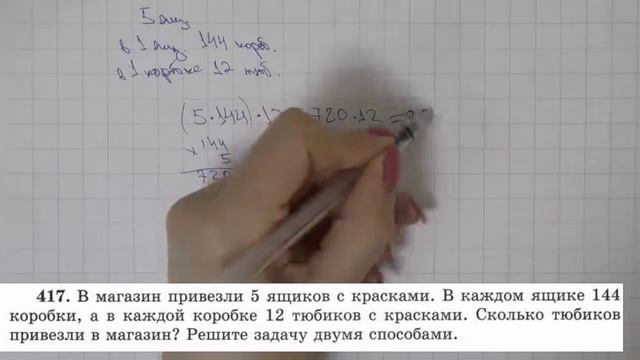 5 ящ
в 1 ящ. 144 короб.
в 1 коробке 12 тюб.
(5·144)·12 720·12 =
×144
5
720
417. В магазин привезли 5 ящиков с красками. В каждом ящике 144
коробки, а в каждой коробке 12 тюбиков с красками. Сколько тюбиков
привезли в магазин? Решите задачу двумя способами.